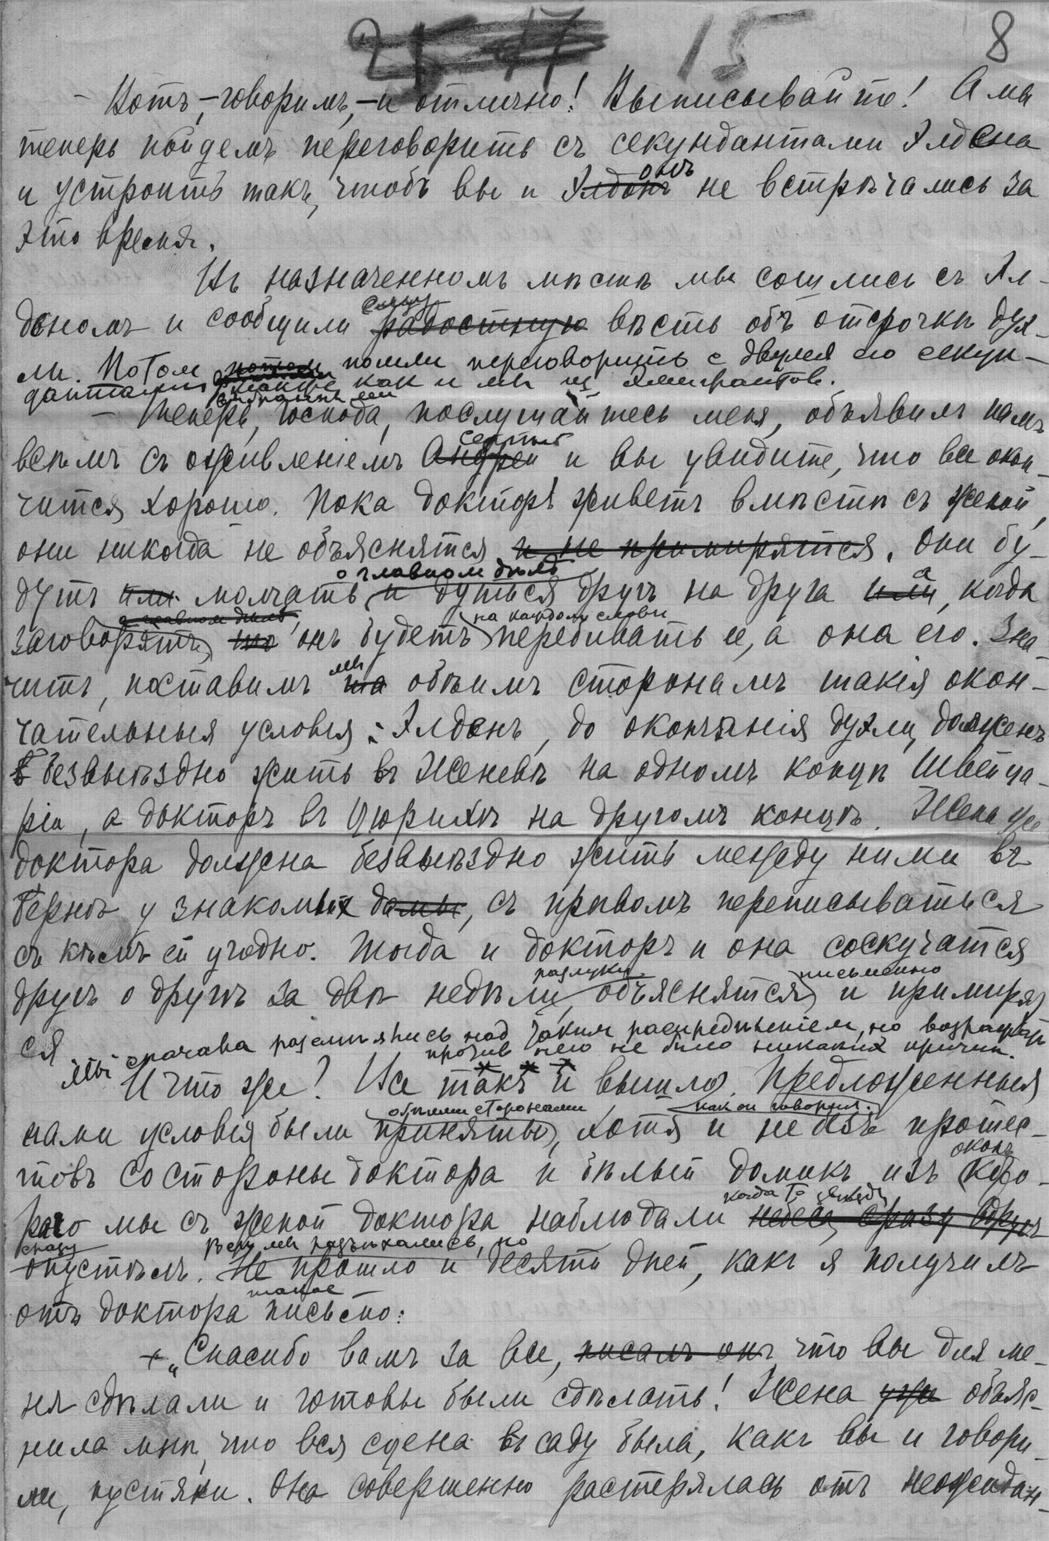 15 8
— Вотъ, — говоримъ, — и отлично! Выписывайте! А мы
теперь пойдемъ переговорить съ секундантами Элдона
онъ
и устроить такъ, чтобъ вы и Элдонъ не встрѣчались за
это время.
Въ назначенномъ мѣстѣ мы сошлись съ Эл-
дономъ и сообщили радостную вѣсть объ отсрочкѣ дуэ-
ли. Потом потом пошли переговорить с двумя его секун-
дантами также, как и мы из эмигрантов.
— Теперь, господа, послушайтесь меня, объявилъ намъ
Сергѣй
всѣмъ съ оживленіемъ Андрей и вы увидите, что все окон-
чится хорошо. Пока докторъ живетъ вмѣстѣ съ женой,
они никогда не объяснятся и не примирятся. Они бу-
о главном дѣлѣ
дутъ или молчать и дуться другъ на друга или, а когда
о главном дѣлѣ на каждом слове
заговорятъ, то онъ будетъ перебивать ее, а она его. Зна-
мы
читъ, поставимъ та обѣимъ сторонамъ такія окон-
чательныя условія: Элдонъ, до окончанія дуэли, долженъ
безвыѣздно жить въ Женевѣ на одномъ концѣ Швейца-
ріи, а докторъ въ Цюрихѣ на другомъ концѣ. Жена же
доктора должна безвыѣздно жить между ними въ
Бернѣ у знакомых дамы, съ правомъ переписываться
съ кѣмъ ей угодно. Тогда и докторъ и она соскучатся
разлуки письменно
другъ о другѣ за двѣ недѣли, объяснятся и примирят-
ся.
Мы сначала разсмѣялись над таким распредѣленіем, но возражать
против него не было никаких причин.
И что же? Все такъ и вышло. Предложенныя
обѣими сторонами как он говорил
нами условія были приняты, хотя и не безъ протес-
окон
товъ со стороны доктора и бѣлый домикъ изъ кото-
когда то
раго мы съ женой доктора наблюдали небеса, сразу
сразу Всѣ мы разъѣхались, но
опустѣлъ. Не прошло и десяти дней, какъ я получилъ
такое
отъ доктора письмо:
— „Спасибо вамъ за все, писалъ онъ что вы для ме-
ня сдѣлали и готовы были сдѣлать! Жена уже объяс-
нила мнѣ, что вся сцена въ саду была, какъ вы и говори-
ли, пустяки. Она совершенно растерялась отъ неожидан-